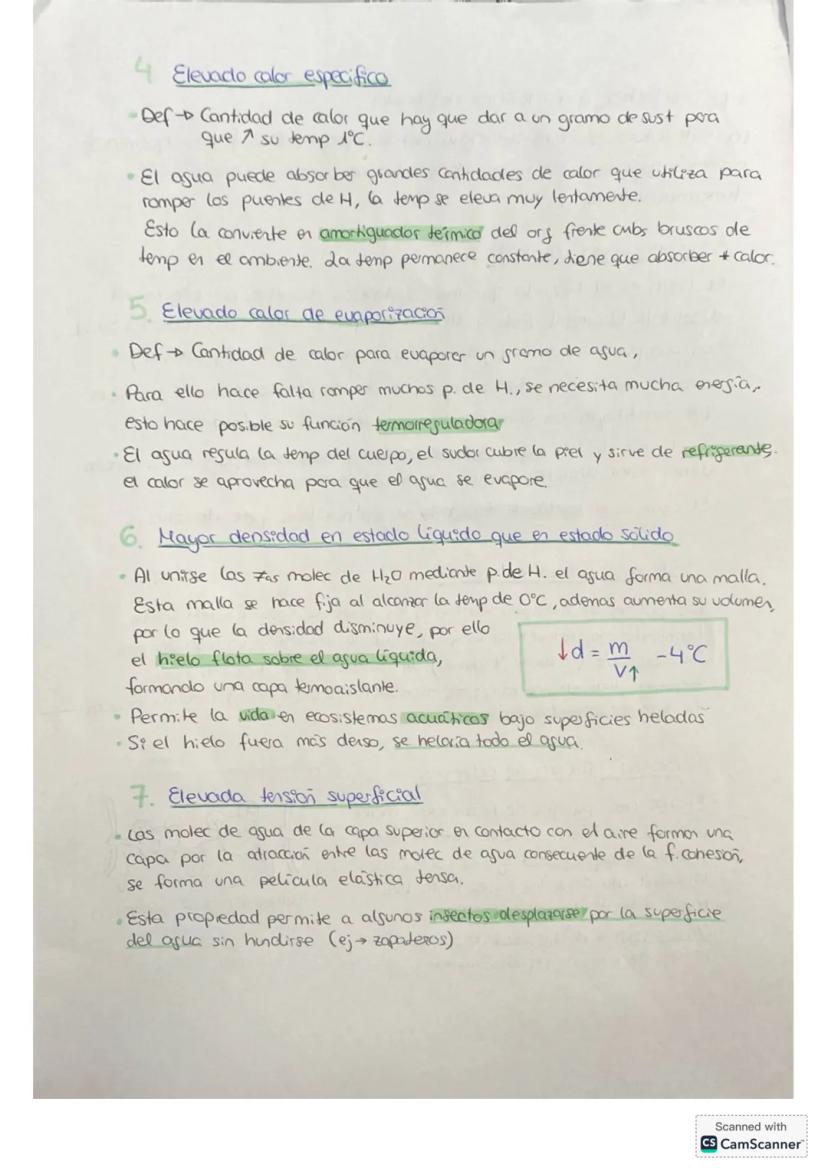 4 Elevado calor específico
• Def → Cantidad de calor que hay que dar a un gramo de sust para
que ↗ su temp 1°C.
• El agua puede absorber grandes cantidades de calor que utiliza para
romper los puentes de H, la temp se eleva muy lentamente.
Esto la convierte en amortiguador térmico del org frente cmbs bruscos de
temp en el ambiente. La temp permanece constante, tiene que absorber + calor.
5. Elevado calor de evaporización
• Def → Cantidad de calor para evaporar un gramo de agua,
• Para ello hace falta romper muchos p. de H., se necesita mucha energía,
esto hace posible su función termorreguladora
• El agua regula la temp del cuerpo, el sudor cubre la piel y sirve de refrigerante.
el calor se aprovecha para que el agua se evapore.
6. Mayor densidad en estado líquido que en estado sólido
• Al unirse las ≠as molec de H₂O mediante p. de H. el agua forma una malla.
Esta malla se hace fija al alcanzar la temp de 0°C, ademas aumenta su volumen,
por lo que la densidad disminuye, por ello
el hielo flota sobre el agua líquida,
formando una capa termoaislante.
↓d = m/V↑ -4°C
• Permite la vida en ecosistemas acuáticos bajo superficies heladas
• Si el hielo fuera más denso, se helaría todo el agua.
7. Elevada tensión superficial
• Las molec de agua de la capa superior en contacto con el aire forman una
capa por la atracción entre las molec de agua consecuente de la f. cohesión,
se forma una película elástica tensa.
• Esta propiedad permite a algunos insectos desplazarse por la superficie
del agua sin hundirse (ej → zapateros)
Scanned with
CS CamScanner